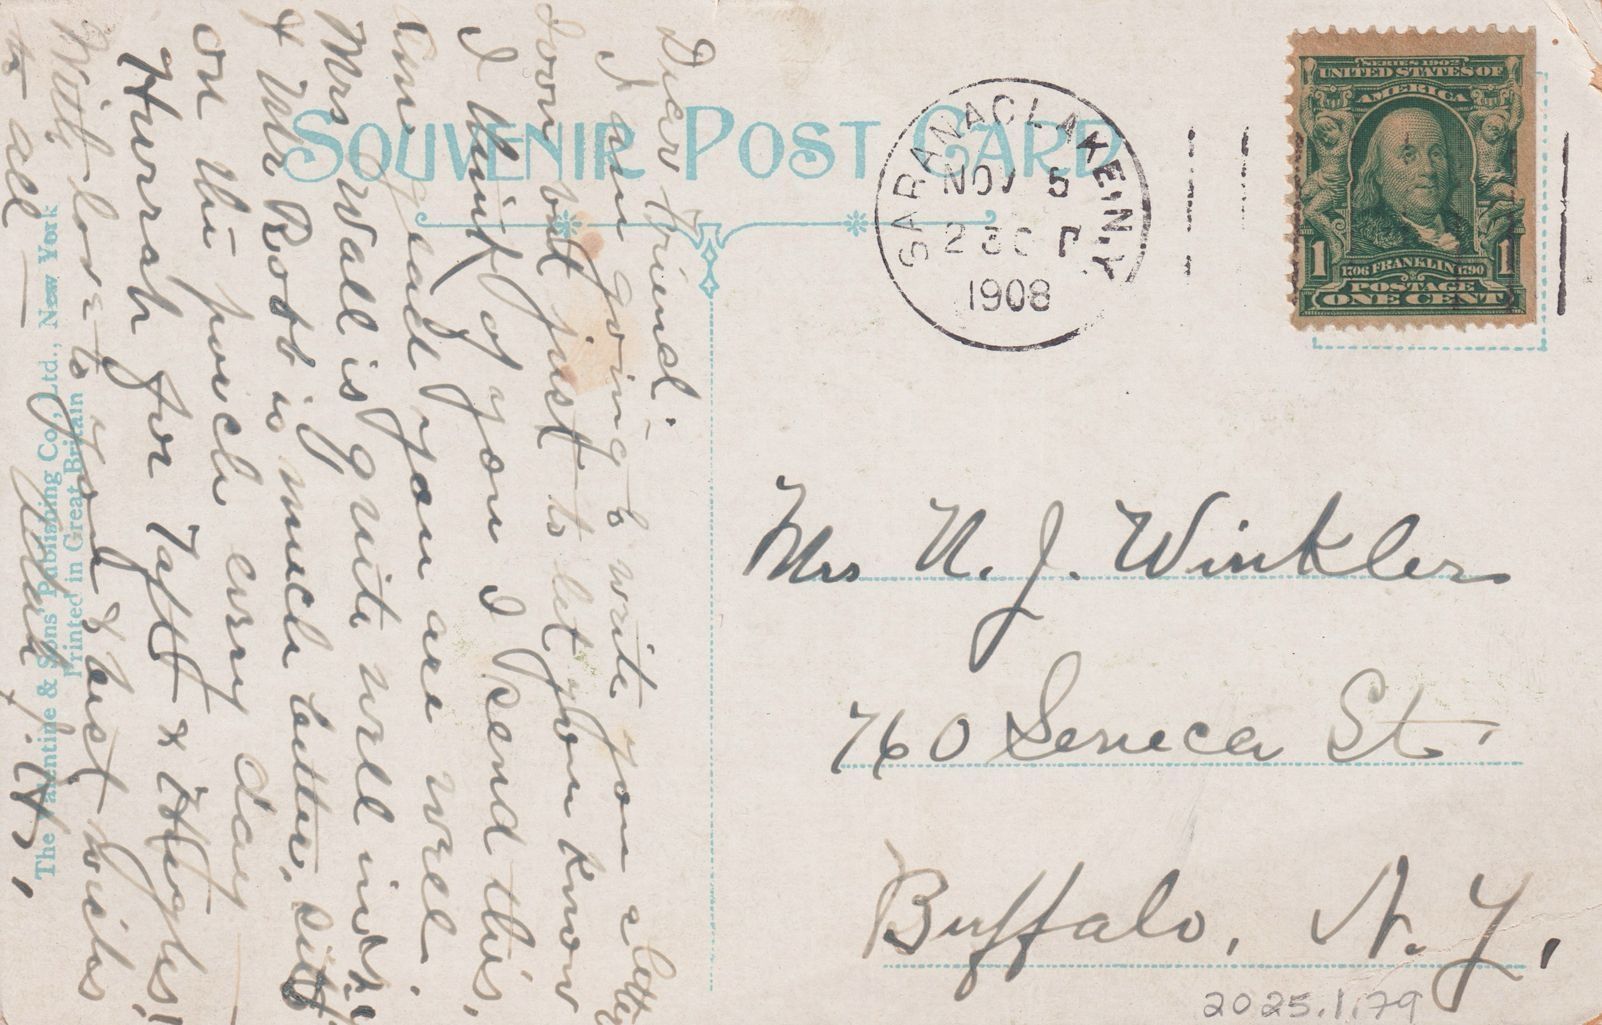 SOUVENIR POST CARD
SARANAC LAKE, N.Y.
NOV 5
2 30 P
1908
SERIES 1902
UNITED STATES OF
AMERICA
1706 FRANKLIN 1790
POSTAGE
1 ONE CENT 1
Dear Friend.
I am going to write you a letter
soon but just to let you know
I think of you I send this,
Am glad you are well.
Mrs Wall is quite well indeed
& Mr Robb is much better, sits
on the porch every day
Hurrah for Taft & Hughes!
With love to you & best wishes
to all —
Mrs N. J. Winkler
760 Seneca St.
Buffalo, N.Y.,
The Valentine & Sons' Publishing Co., Ltd., New York
Printed in Great Britain
2025.1.79